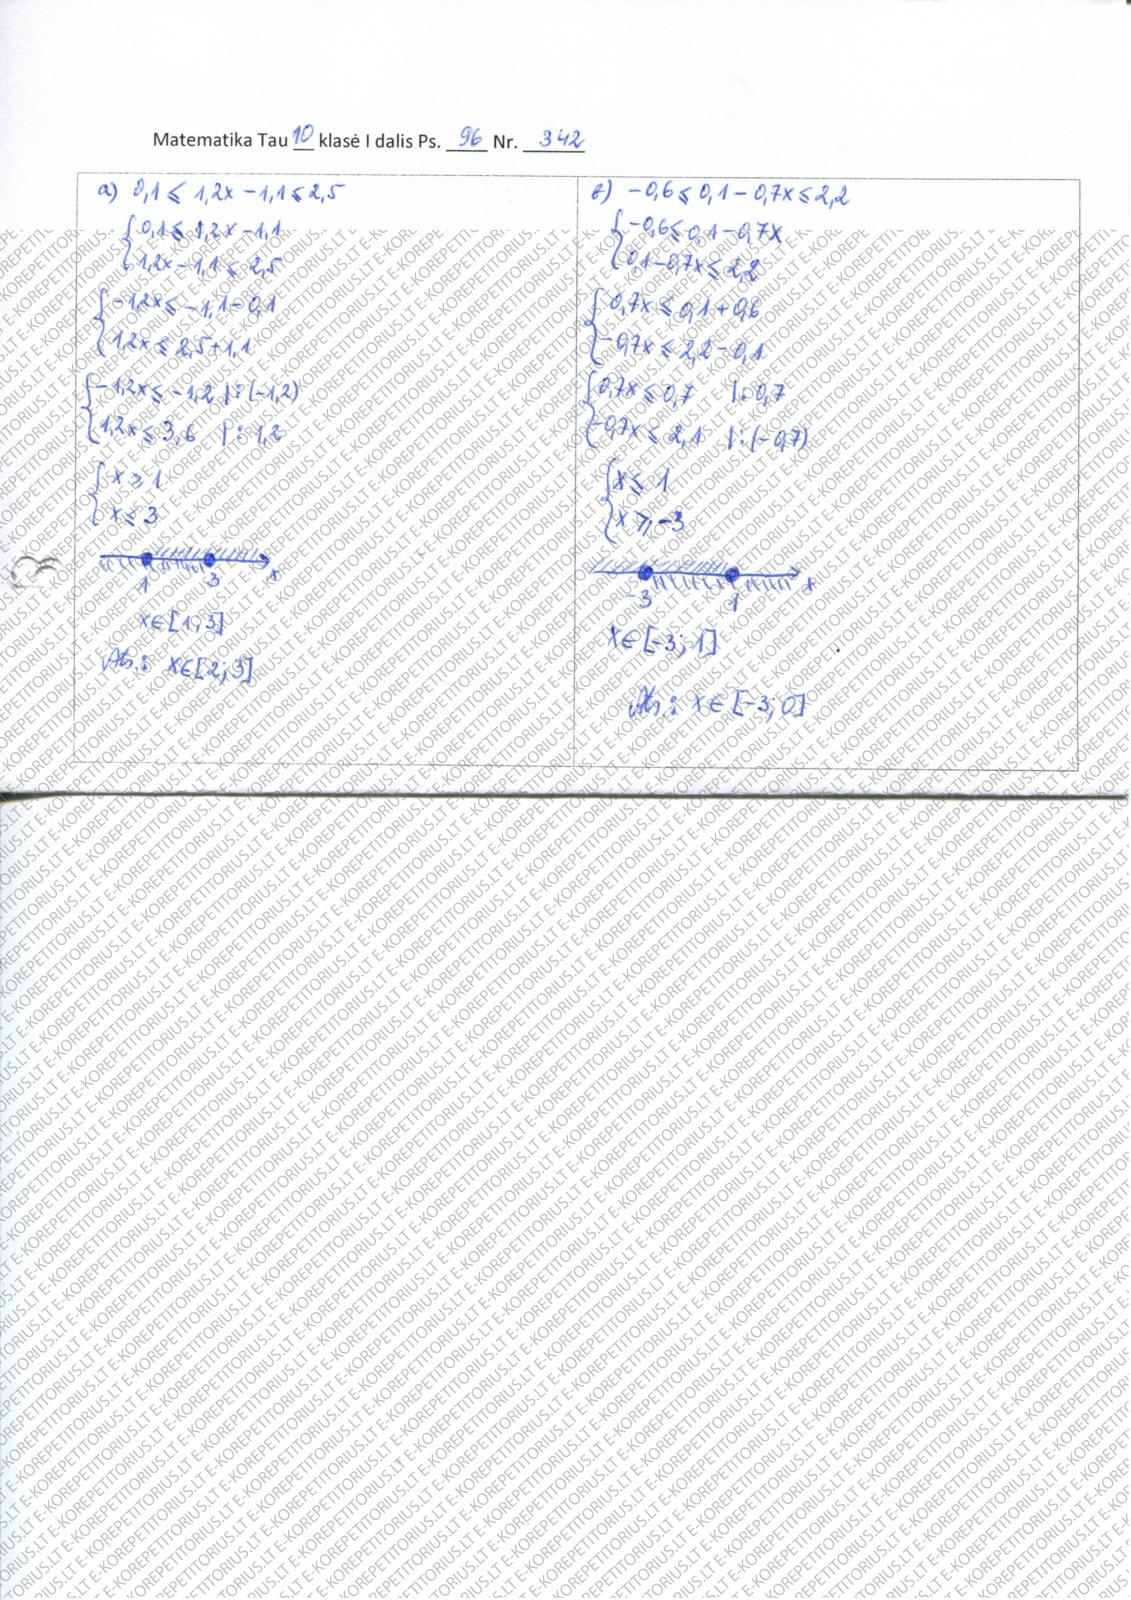 Matematika Tau 10 klasė I dalis Ps. 96 Nr. 342
a) 0,1 ⩽ 1,2x - 1,1 ⩽ 2,5
0,1 ⩽ 1,2x - 1,1
1,2x - 1,1 ⩽ 2,5
-1,2x ⩽ -1,1 - 0,1
1,2x ⩽ 2,5 + 1,1
-1,2x ⩽ -1,2 |:(-1,2)
1,2x ⩽ 3,6 |: 1,2
x ⩾ 1
x ⩽ 3
1 3 x
x∈[1;3]
Ats.: x∈[2;3]
b) -0,6 ⩽ 0,1 - 0,7x ⩽ 2,2
-0,6 ⩽ 0,1 - 0,7x
0,1 - 0,7x ⩽ 2,2
0,7x ⩽ 0,1 + 0,6
-0,7x ⩽ 2,2 - 0,1
0,7x ⩽ 0,7 |: 0,7
-0,7x ⩽ 2,1 |:(-0,7)
x ⩽ 1
x ⩾ -3
-3 1 x
x∈[-3; 1]
Ats.: x∈[-3; 0]
E-KOREPETITORIUS.LT